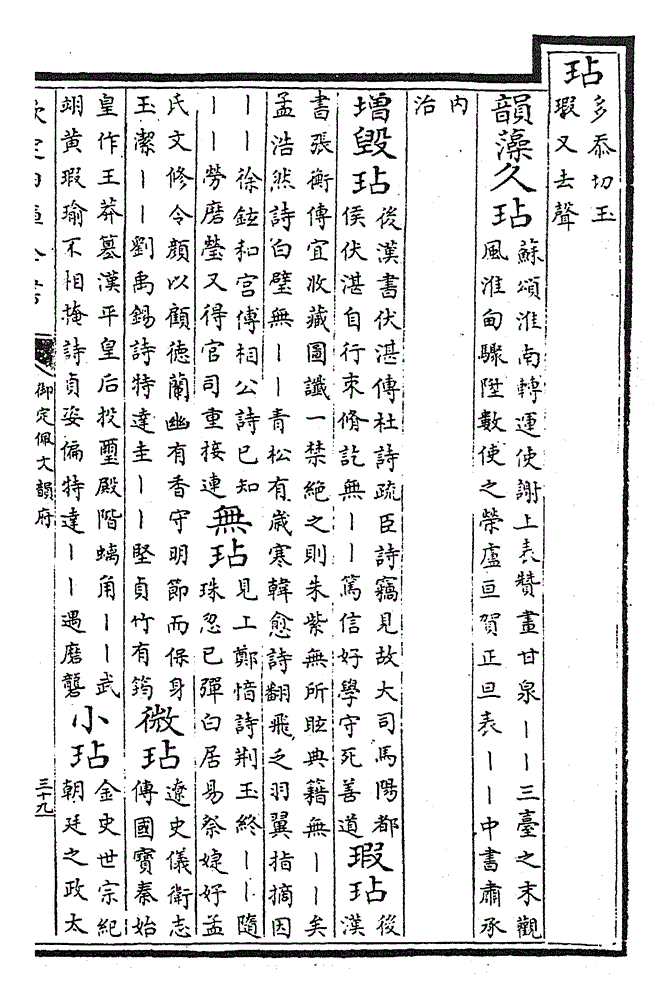 玷
多忝切玉
瑕又去聲
韻藻久玷
蘇頌淮南轉運使謝上表贊畫甘泉丨丨三臺之末觀
風淮甸驟陞數使之榮盧亘賀正旦表丨丨中書肅承
內
治
增毀玷
後漢書伏湛傳杜詩疏臣詩竊見故大司馬陽都
侯伏湛自行束脩訖無丨丨篤信好學守死善道
瑕玷
後
漢
書張衡傳宜收藏圖讖一禁絕之則朱紫無所眩典籍無丨丨矣
孟浩然詩白璧無丨丨青松有歲寒韓愈詩翻飛乏羽翼指摘因
丨丨徐鉉和宫傅相公詩已知
丨丨勞磨瑩又得官司重接連
無玷
見上鄭愔詩荆玉終丨丨隨
珠忽已彈白居易祭婕妤孟
氏文修令顏以顧德蘭幽有香守明節而保身
玉潔丨丨劉禹錫詩特達圭丨丨堅貞竹有筠
微玷
遼史儀衛志
傳國寳秦始
皇作王莽墓漢平皇后投璽殿階螭角丨丨武
翊黄瑕瑜不相掩詩貞姿偏特達丨丨遇磨礱
小玷
金史世宗紀
朝廷之政太
欽定四庫全書
御定佩文韻府
三十九